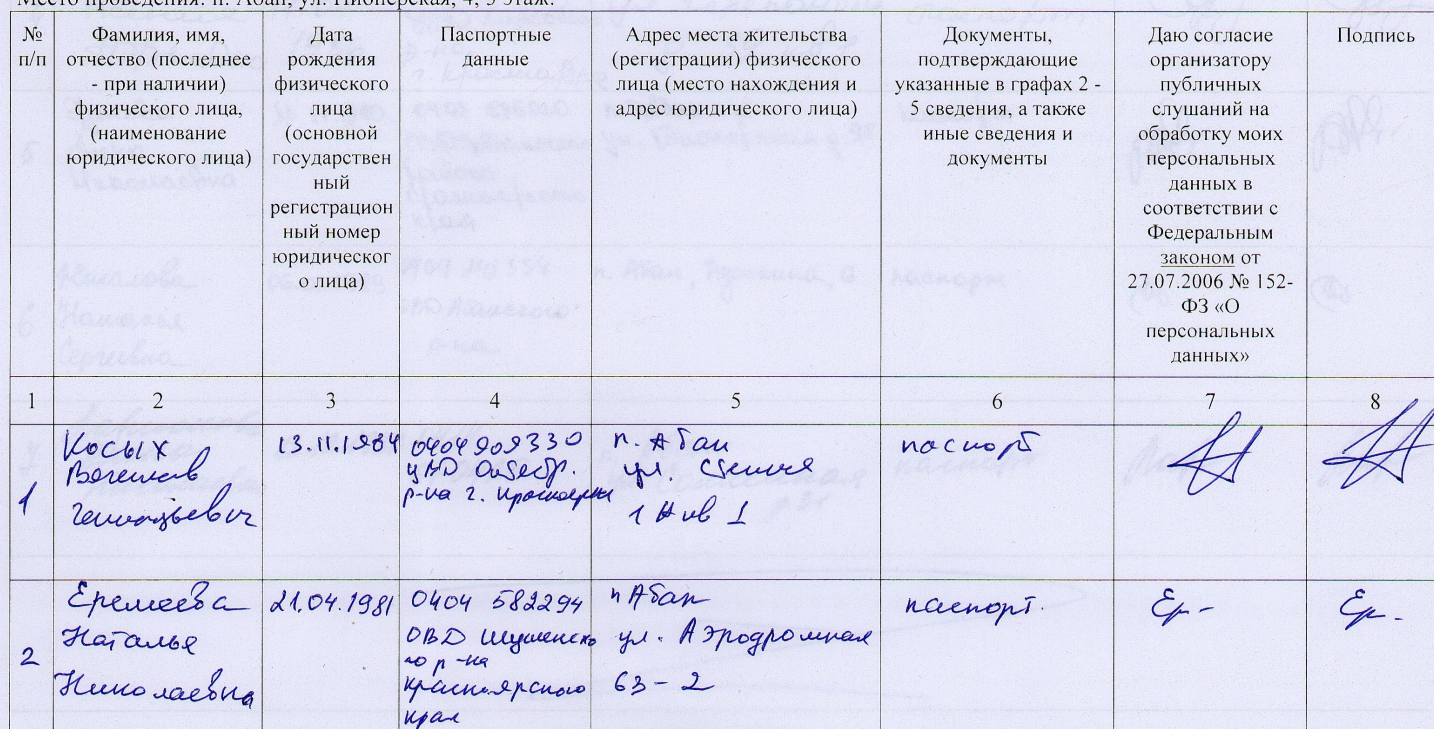 Место проведения: п. Абан, ул. Пионерская, 4, 3 этаж.
№
п/п
Фамилия, имя,
отчество (последнее
- при наличии)
физического лица,
(наименование
юридического лица)
Дата
рождения
физического
лица
(основной
государствен
ный
регистрацион
ный номер
юридическог
о лица)
Паспортные
данные
Адрес места жительства
(регистрации) физического
лица (место нахождения и
адрес юридического лица)
Документы,
подтверждающие
указанные в графах 2 -
5 сведения, а также
иные сведения и
документы
Даю согласие
организатору
публичных
слушаний на
обработку моих
персональных
данных в
соответствии с
Федеральным
законом от
27.07.2006 № 152-
ФЗ «О
персональных
данных»
Подпись
1 2 3 4 5 6 7 8
1
Косых
Геннадьевич
13.11.1984
0404909330
р-на г. Красноярска
п. Абан
ул.
паспорт
2
Еремеева
Наталья
Николаевна
21.04.1981
0404 582294
ОВД Шушенско
го р-на
Красноярского
края
п Абан
ул. Аэродромная
63-2
паспорт.
Ер-
Ер-